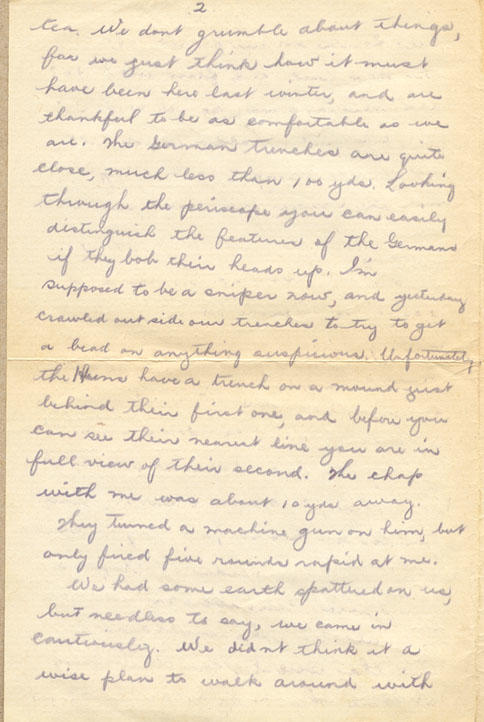 2
tea. We dont grumble about things,
for we just think how it must
have been here last winter, and are
thankful to be as comfortable as we
are. The German trenches are quite
close, much less than 100 yds. Looking
through the periscope you can easily
distinguish the features of the Germans
if they bob their heads up. I'm
supposed to be a sniper now, and yesterday
crawled outside our trenches to try to get
a bead on anything suspicious. Unfortunately,
the Huns have a trench on a mound just
behind their first one, and before you
can see their nearest line you are in
full view of their second. The chap
with me was about 10 yds away.
They turned a machine gun on him, but
only fired five rounds rapid at me.
We had some earth spattered on us,
but needless to say, we came in
cautiously. We didnt think it a
wise plan to walk around with